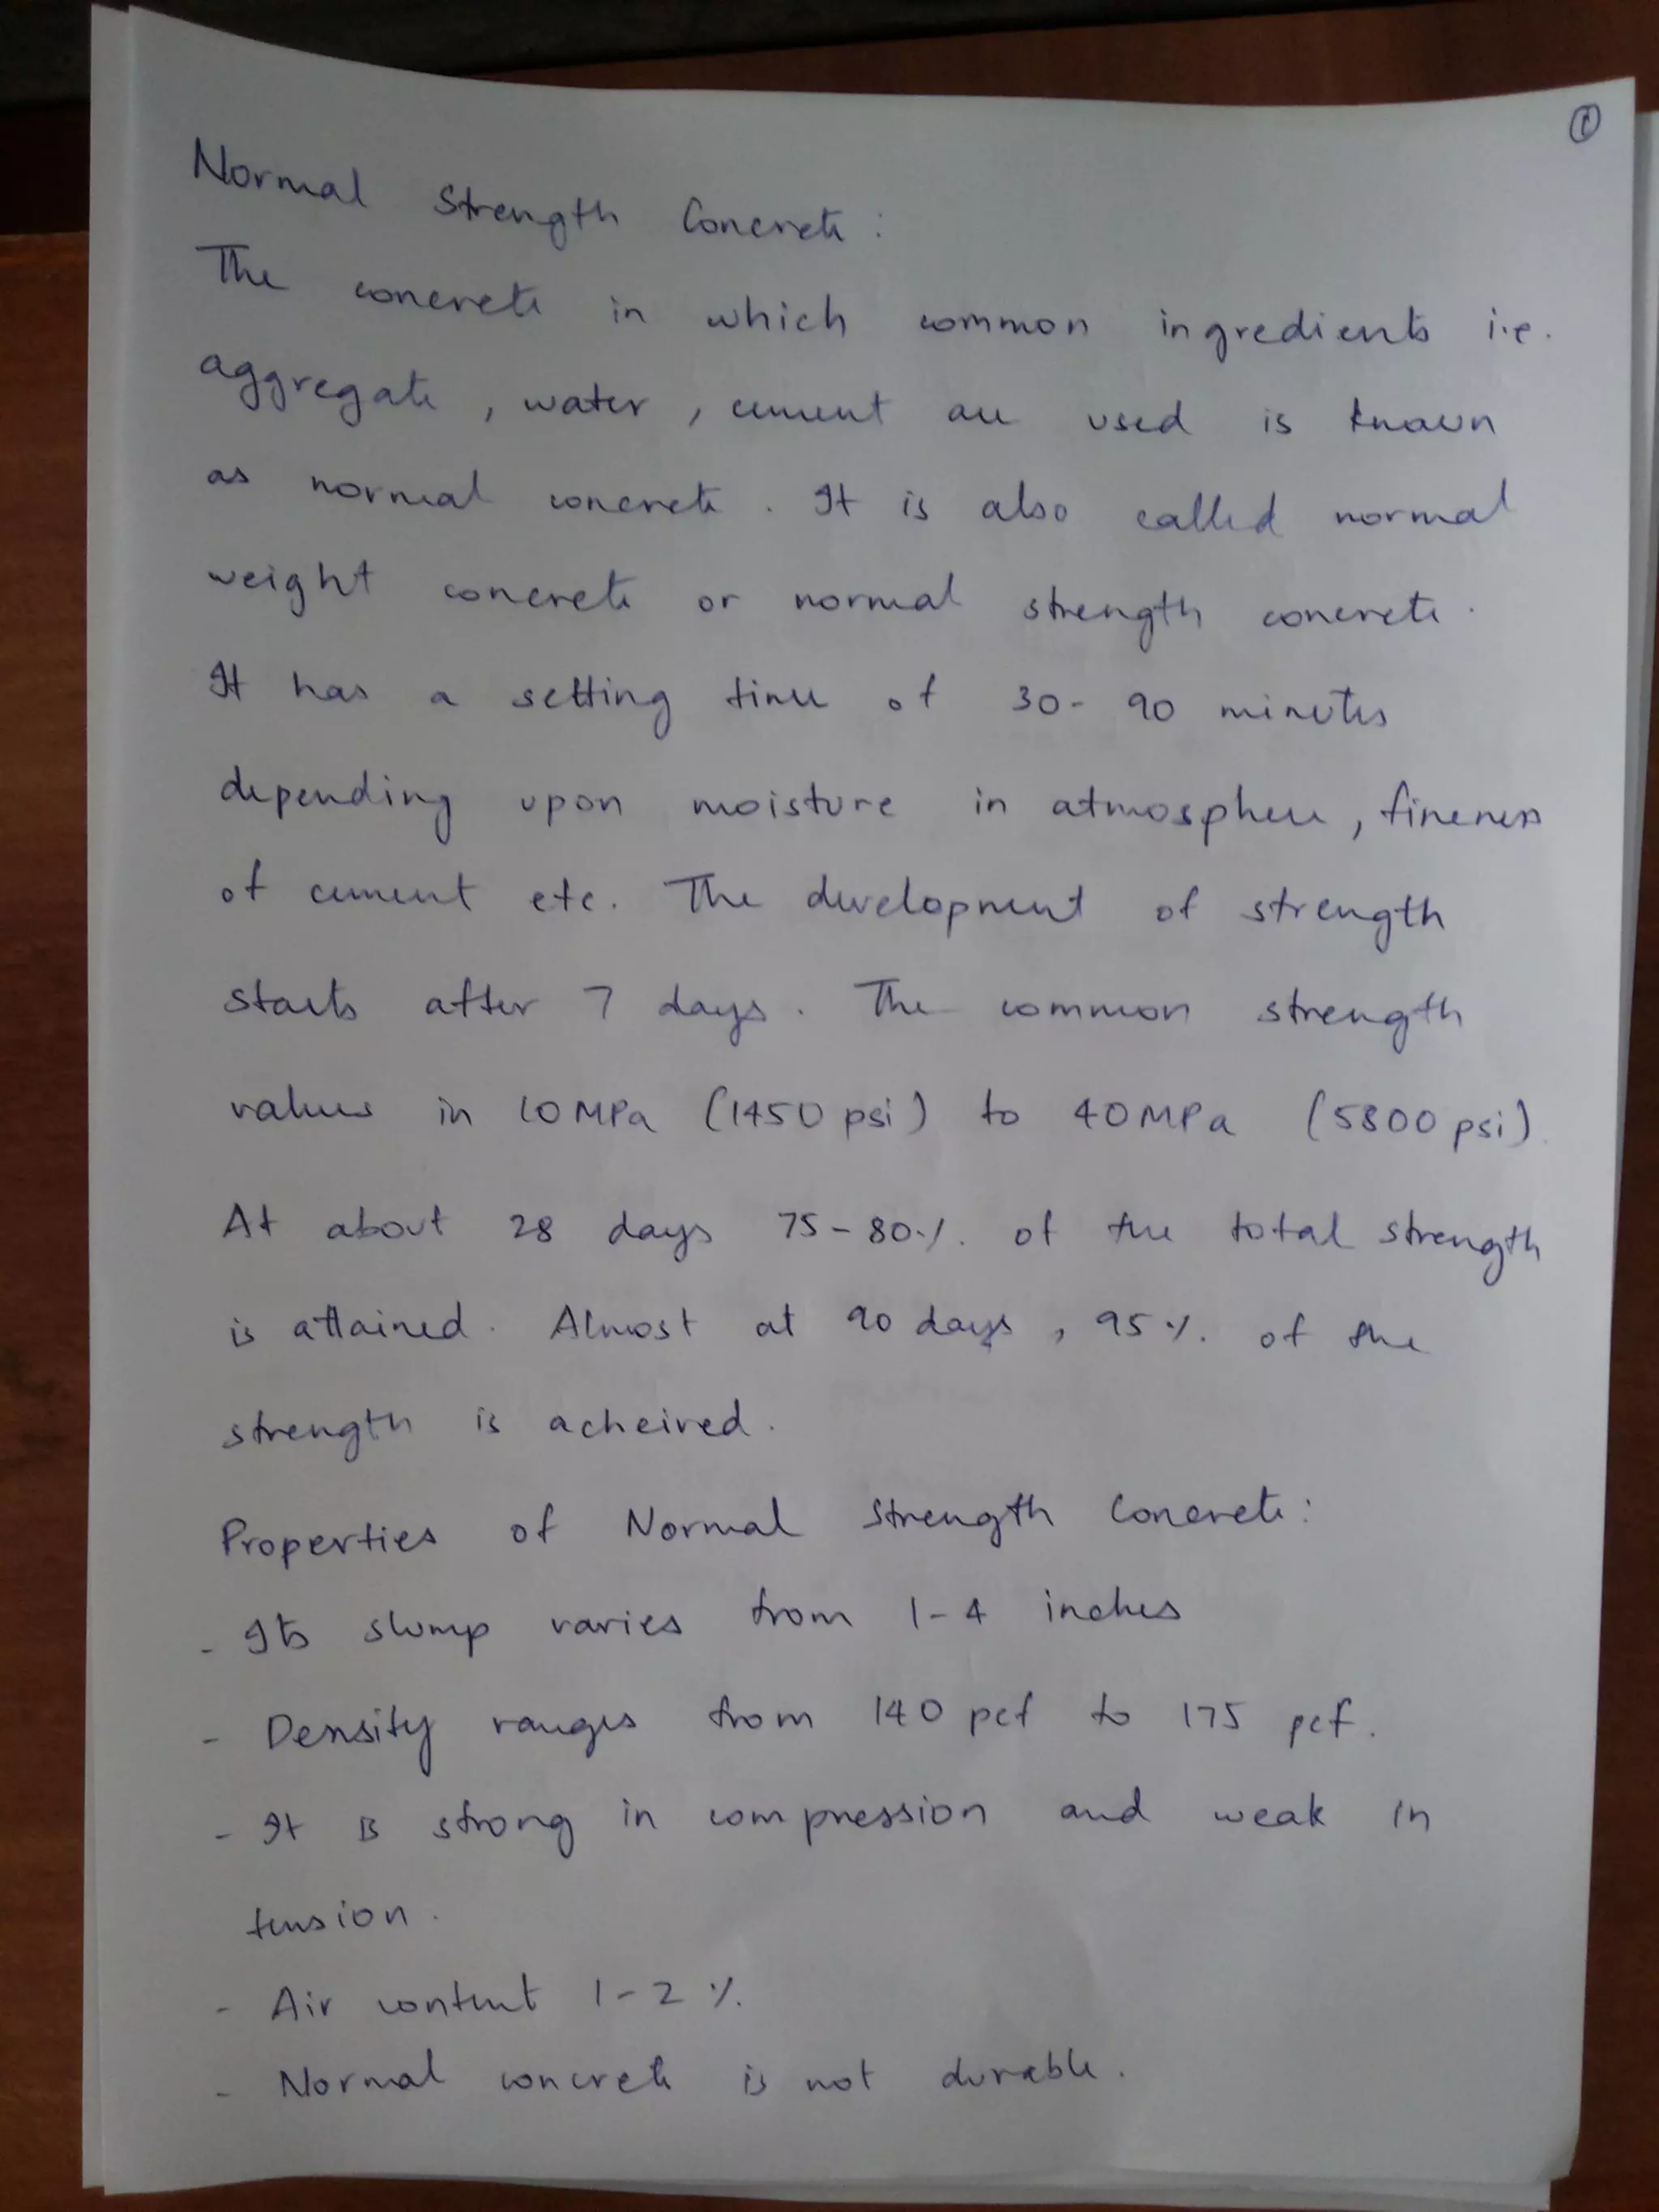 ①
Normal Strength Concrete :
The concrete in which common ingredients i.e.
aggregate , water , cement are used is known
as normal concrete . It is also called normal
weight concrete or normal strength concrete .
It has a setting time of 30 - 90 minutes
depending upon moisture in atmosphere , fineness
of cement etc. The development of strength
starts after 7 days . The common strength
values in 10 MPa (1450 psi) to 40 MPa (5800 psi).
At about 28 days 75 - 80 % of the total strength
is attained . Almost at 90 days , 95 % of the
strength is acheived .
Properties of Normal Strength Concrete :
- Its slump varies from 1 - 4 inches
- Density ranges from 140 pcf to 175 pcf .
- It is strong in compression and weak in
tension .
- Air content 1 - 2 %
- Normal concrete is not durable .